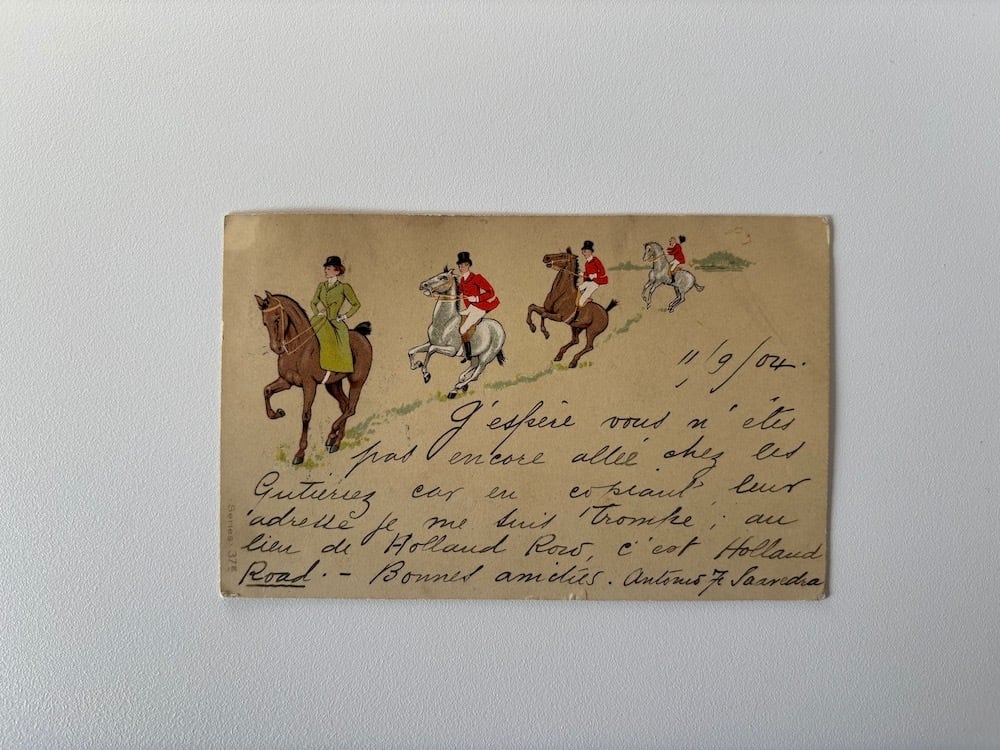 11/9/04.
J'espère vous n'êtes
pas encore allée chez les
Gutierrez car en copiant leur
adresse je me suis trompé; au
lieu de Holland Row, c'est Holland
Road. - Bonnes amitiés. Antonio F. Saavedra
Series. 375